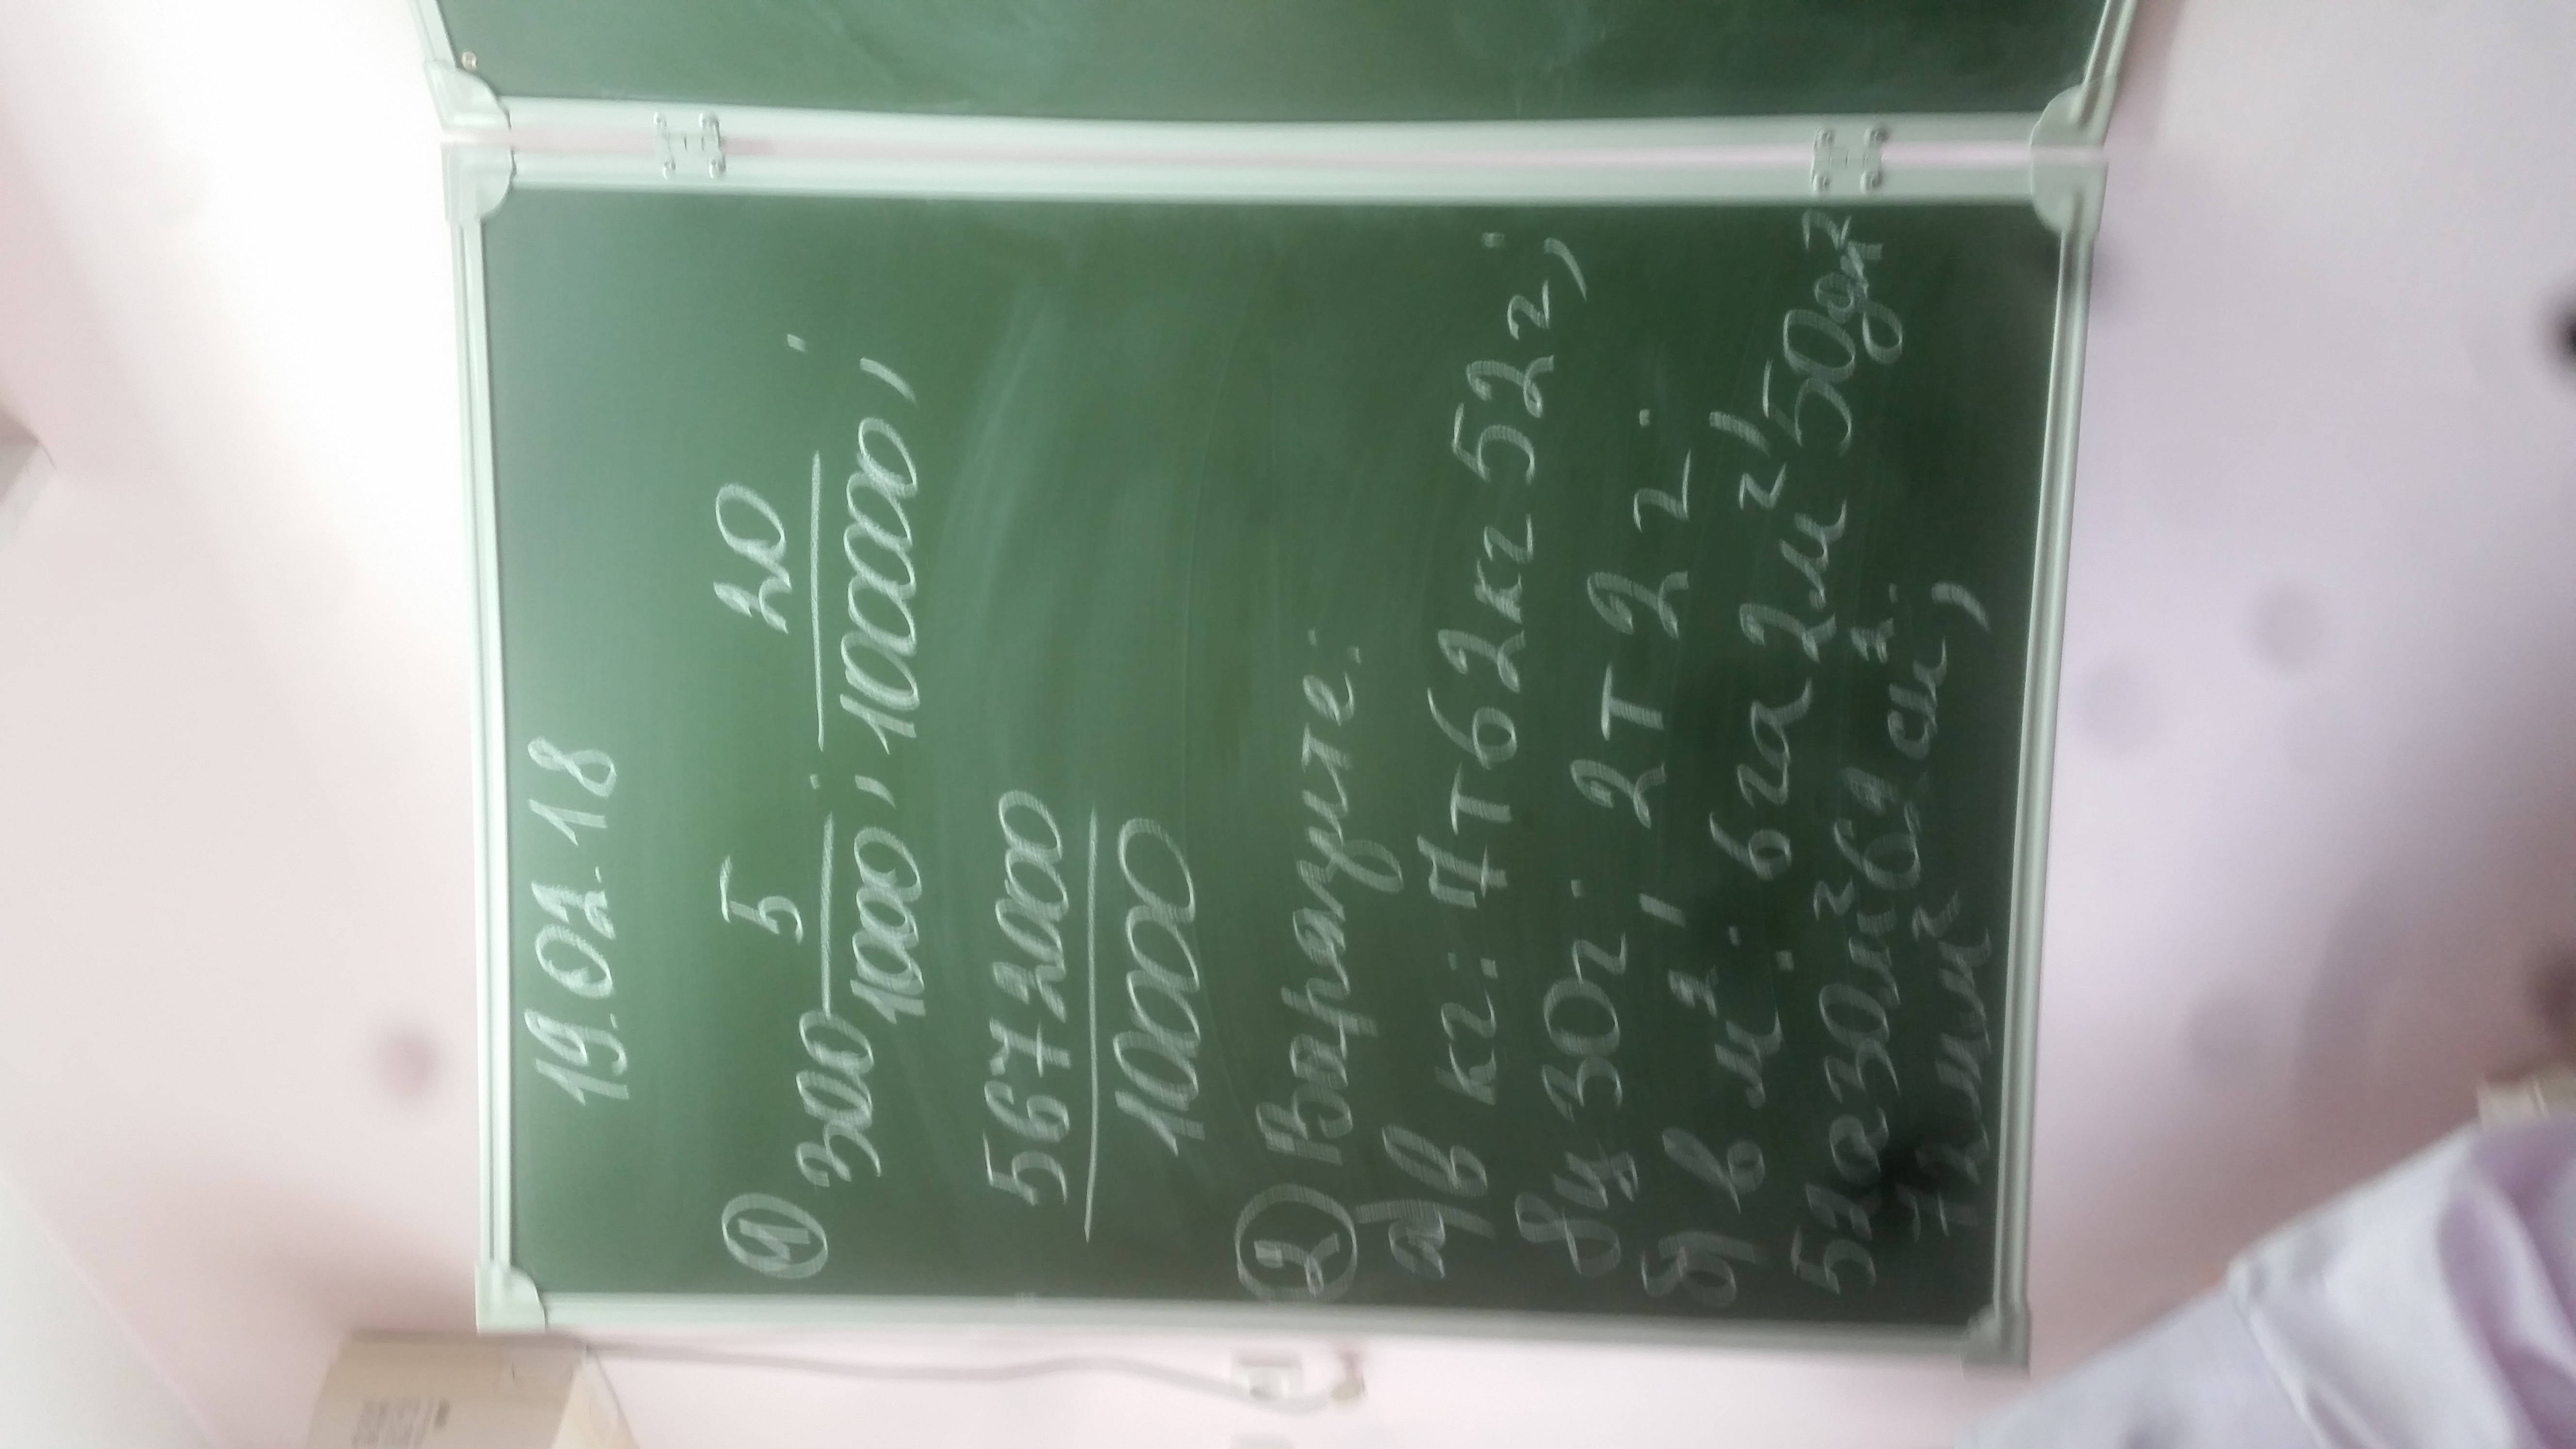 19.02.18
① 300 5/1000 ; 20/100000 ;
5672000/10000
② Выразите:
а) в кг: 7т 62кг 52г;
8ц 30г; 2т 2г;
б) в м²: 6га 2м² 50дм²;
5га 30м² 61см²;
72мм²